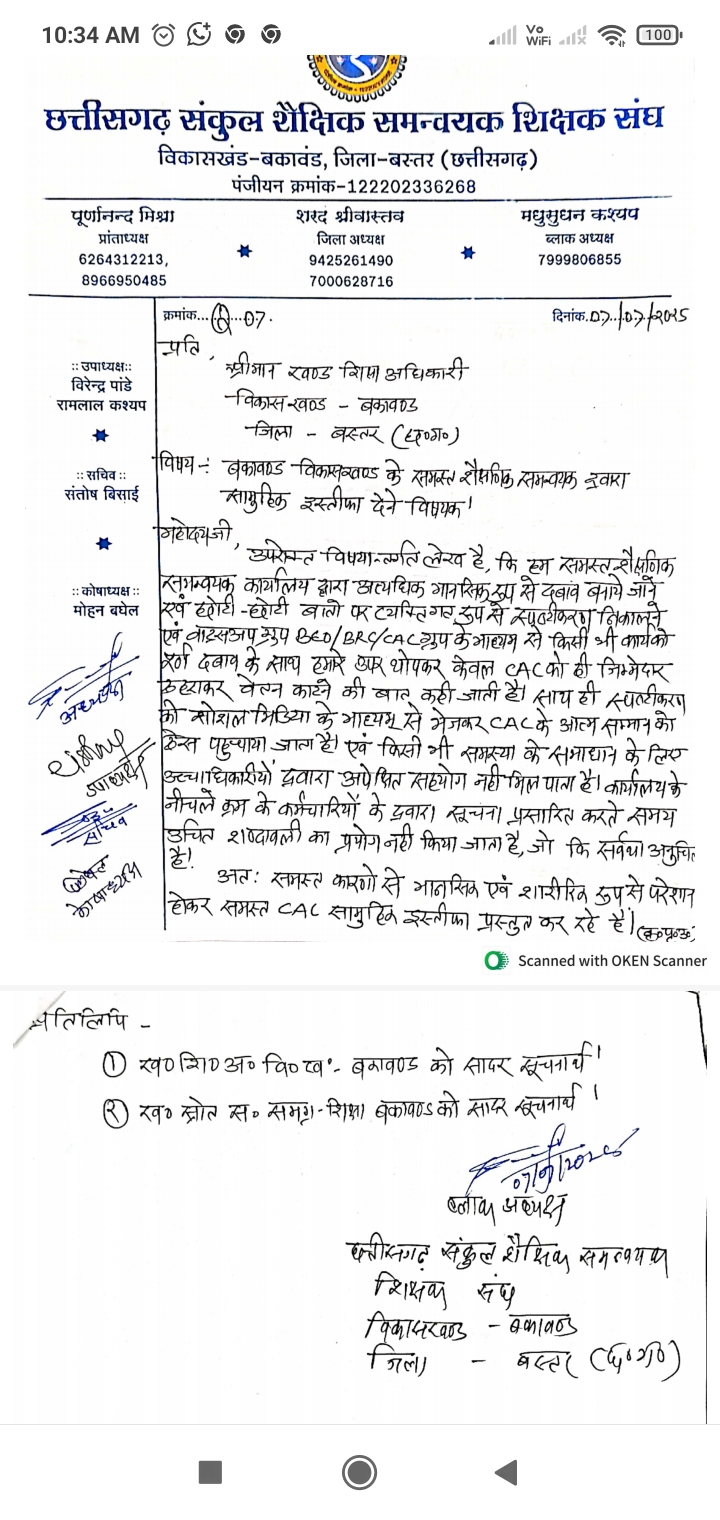 10:34 AM
Vo
WiFi
100
छत्तीसगढ़ संकुल शैक्षिक समन्वयक शिक्षक संघ
विकासखंड-बकावंड, जिला-बस्तर (छत्तीसगढ़)
पंजीयन क्रमांक-122202336268
पूर्णानन्द मिश्रा
प्रांताध्यक्ष
6264312213,
8966950485
शरद श्रीवास्तव
जिला अध्यक्ष
9425261490
7000628716
मधुसुधन कश्यप
ब्लाक अध्यक्ष
7999806855
क्रमांक... 07.
दिनांक.07/07/2025
:: उपाध्यक्ष::
विरेन्द्र पांडे
रामलाल कश्यप
:: सचिव ::
संतोष बिसाई
:: कोषाध्यक्ष ::
मोहन बघेल
अध्यक्ष
उपाध्यक्ष
सचिव
कोषाध्यक्ष
प्रति,
श्रीमान खण्ड शिक्षा अधिकारी
विकासखण्ड - बकावण्ड
जिला - बस्तर (छ०ग०)
विषय :- बकावण्ड विकासखण्ड के समस्त शैक्षणिक समन्वयक द्वारा
सामुहिक इस्तीफा देने विषयक।
महोदयजी,
उपरोक्त विषयान्तर्गत लेख है, कि हम समस्त शैक्षणिक
समन्वयक कार्यालय द्वारा अत्यधिक मानसिक रूप से दबाव बनाये जाने
एवं छोटी-छोटी बातो पर व्यक्तिगत रूप से स्पष्टीकरण निकालने
एवं वाटसअप ग्रुप BEO/BRC/CAC ग्रुप के माध्यम से किसी भी कार्य को
पूर्ण दबाव के साथ हमारे ऊपर थोपकर केवल CAC को ही जिम्मेदार
ठहराकर वेतन काटने की बात कही जाती है। साथ ही स्पष्टीकरण
को सोशल मिडिया के माध्यम से भेजकर CAC के आत्म सम्मान को
ठेस पहुचाया जाता है। एवं किसी भी समस्या के समाधान के लिए
उच्चाधिकारीयों द्वारा अपेक्षित सहयोग नही मिल पाता है। कार्यालय के
नीचले क्रम के कर्मचारियों के द्वारा सूचना प्रसारित करते समय
उचित शब्दावली का प्रयोग नही किया जाता है, जो कि सर्वथा अनुचित
है।
अतः समस्त कारणो से मानसिक एवं शारीरिक रूप से परेशान
होकर समस्त CAC सामुहिक इस्तीफा प्रस्तुत कर रहे है।
Scanned with OKEN Scanner
प्रतिलिपि -
① ख० शि० अ० वि० ख० - बकावण्ड को सादर सूचनार्थ।
② ख० स्रोत स० समग्र-शिक्षा बकावण्ड को सादर सूचनार्थ।
07/07/2025
ब्लाक अध्यक्ष
छत्तीसगढ़ संकुल शैक्षिक समन्वयक
शिक्षक संघ
विकासखण्ड - बकावण्ड
जिला - बस्तर (छ०ग०)